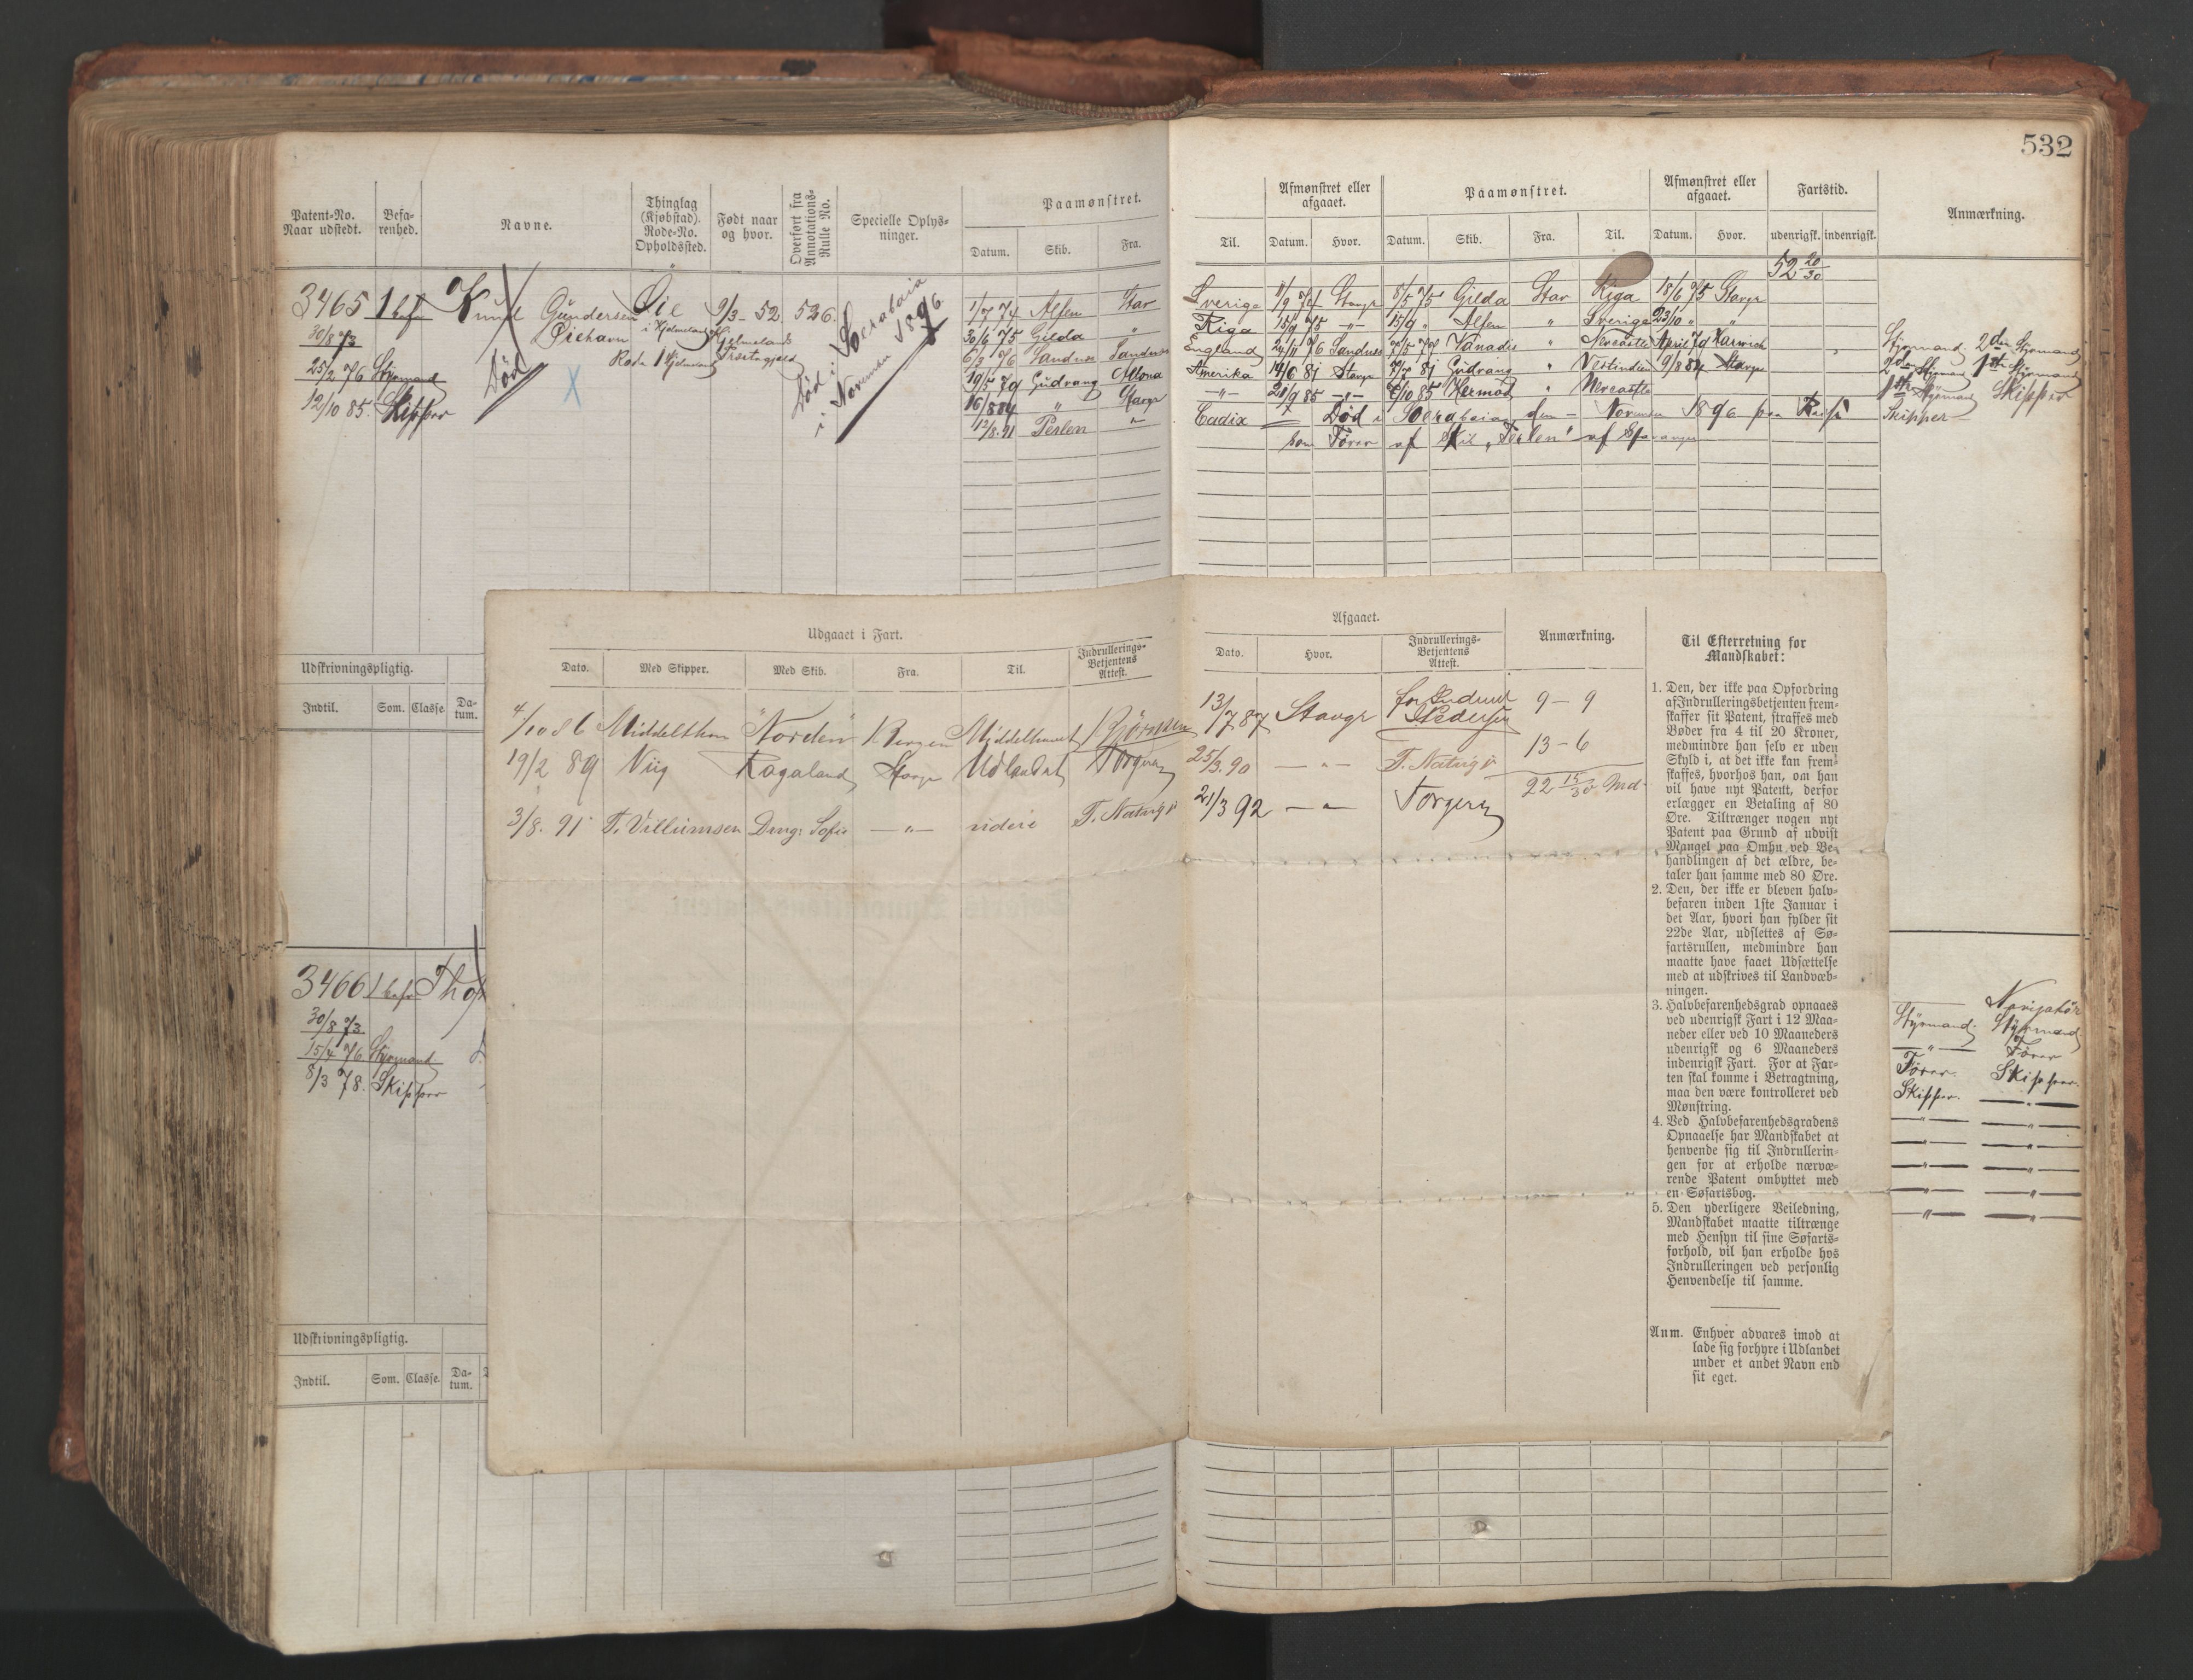 532
Patent-No. Naar udstedt.
Befa-renhed.
Navne.
Thinglag (Kjøbstad). Rode-No. Opholdssted.
Født naar og hvor.
Overført fra Annotations-Rulle No.
Specielle Oplys-ninger.
Paamønstret.
Datum. Skib. Fra.
Til.
Afmønstret eller afgaaet.
Datum. Hvor.
Paamønstret.
Datum. Skib. Fra. Til.
Afmønstret eller afgaaet.
Datum. Hvor.
Fartstid.
udenrigsk. indenrigsk.
Anmærkning.
52 20/30
3465 1 bef Knud Gundersen Øie 9/3 - 52. 536.
30/8 73 Øiehavn i Hjelmeland Hjelmelands
25/2 76 Styrmand Død Rode 1 Hjelmeland Præstegjeld
12/10 85. Skipper
Død i Soerabaia
i November 1896
1/7 74 Alfen Star Sverige 11/9 74 Stavgr 8/5 75 Gilda Stav Riga 18/6 75 Stavgr
30/6 75 Gilda " Riga 15/9 75 -"- 15/9 " Alfen " Sverige 23/10 " "
Sandnes Sandnes England 76 Sandnes Vanadis " Newcastle April 79 Harwich Styrmand. 2den Styrmand
19/5 80 Gudrang Altona Amerika 14/6 81 Stavgr 81 Gudrang " Vestindien 9/8 84 Stavgr 2den Styrmand 1ste Styrmand
16/8 84 " Stavgr -"- 21/9 85 -"- 10 85 Hermod " Newcastle 1ste Styrmand Skipper
12/8. 91 Perlen " Cadix Død i Soerabaia den - November 1896 paa Skipper
som Fører af Skib "Perlen" af Stavanger
Udskrivningspligtig.
Indtil. Som. Classe. Da-tum.
3466 1 bef.
30/8 73
15/4 76 Styrmand
8/3 78. Skipper
Navigatør
Styrmand. Styrmand
-"- Fører
Fører. Skipper.
Skipper. -"-
-"- -"-
-"- -"-
-"- -"-
-"- -"-
-"- -"-
Udskrivningspligtig.
Indtil. Som. Classe. Da-tum.
Udgaaet i Fart.
Dato. Med Skipper. Med Skib. Fra. Til. Indrullerings-Betjentens Attest.
Afgaaet.
Dato. Hvor. Indrullerings-Betjentens Attest.
Anmærkning.
4/10 86 Middelthon "Norden" Bergen Middelhavet 13/7 87 Stavgr 9 - 9
19/2 89 Niig Rogaland Stavgr Udlandet Torgersen 25/3. 90 - " - 13 - 6
22 15/30 Md.
3/8. 91 T. Villumsen Dmg: Sofie -"- videre 21/3 92 - " - Torgersen
Til Efterretning for
Mandskabet:
1. Den, der ikke paa Opfordring
af Indrulleringsbetjenten frem-
skaffer sit Patent, straffes med
Bøder fra 4 til 20 Kroner,
medmindre han selv er uden
Skyld i, at det ikke kan frem-
skaffes, hvorhos han, om han
vil have nyt Patent, derfor
erlægger en Betaling af 80
Øre. Tiltrænger nogen nyt
Patent paa Grund af udvist
Mangel paa Omhu ved Be-
handlingen af det ældre, be-
taler han samme med 80 Øre.
2. Den, der ikke er bleven halv-
befaren inden 1ste Januar i
det Aar, hvori han fylder sit
22de Aar, udslettes af Sø-
fartsrullen, medmindre han
maatte have faaet Udsættelse
med at udskrives til Landvæb-
ningen.
3. Halvbefarenhedsgrad opnaaes
ved udenrigsk Fart i 12 Maa-
neder eller ved 10 Maaneders
udenrigsk og 6 Maaneders
indenrigsk Fart. For at Far-
ten skal komme i Betragtning,
maa den være kontrolleret ved
Mønstring.
4. Ved Halvbefarenhedsgradens
Opnaaelse har Mandskabet at
henvende sig til Indrullerin-
gen for at erholde nærvæ-
rende Patent ombyttet med
en Søfartsbog.
5. Den yderligere Veiledning,
Mandskabet maatte tiltrænge
med Hensyn til sine Søfarts-
forhold, vil han erholde hos
Indrulleringen ved personlig
Henvendelse til samme.
Anm. Enhver advares imod at
lade sig forhyre i Udlandet
under et andet Navn end
sit eget.